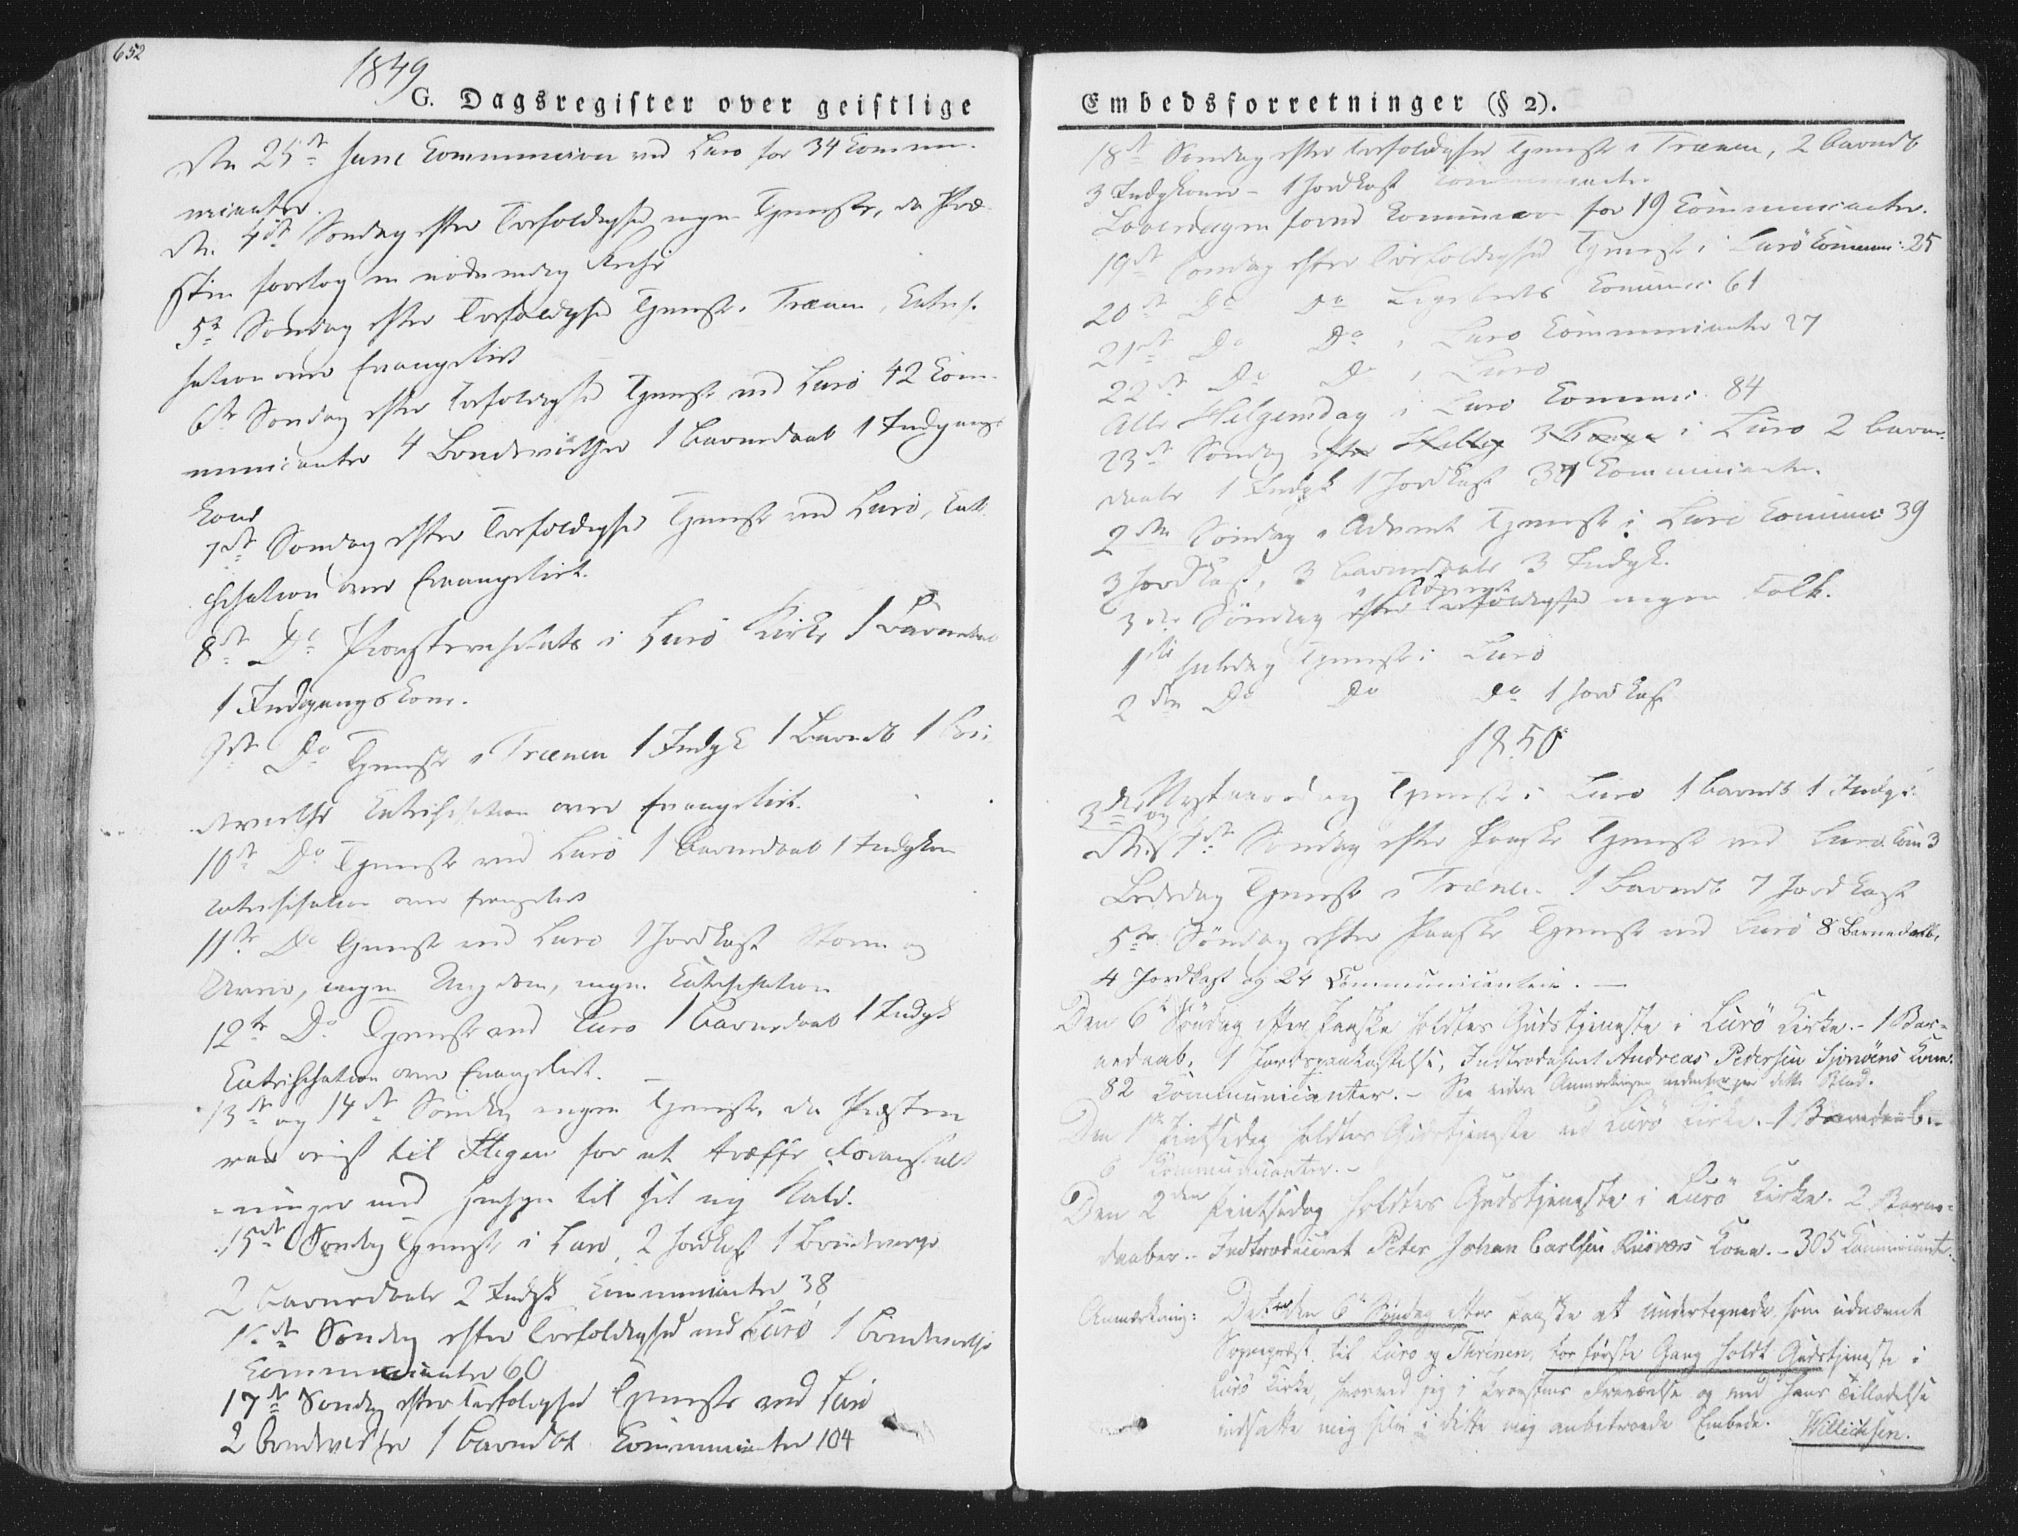 652
1849
G. Dagsregister over geistlige
Den 25de Juni Communion ved Lurö for 34 Commu-
nicanter.
Den 4de Søndag efter Trefoldighed ingen Tjeneste, da Præ-
sten foretog en nødvendig Reise
5te Søndag efter Trefoldighed Tjeneste i Trænen, Catechi-
sation over Evangeliet
6te Søndag efter Trefoldighed Tjeneste ved Lurö 42 Com-
municanter 4 Brudevielser 1 Barnedaab 1 Indgangs
Kone
7de Søndag efter Trefoldighed Tjeneste ved Lurö, Cate-
chisation over Evangeliet.
8de Do i Lurö Kirke 1 Barnedaab
1 Indgangskone.
9de Do Tjeneste i Trænen 1 Indgk 1 Barnedb 1 Bru-
devielse Catechisation over Evangeliet.
10de Do Tjeneste ved Lurö 1 Barnedaab 1 Indgkone
Catechisation over Evangeliet
11te Do Tjeneste ved Lurö 1 Jordkast Storm og
Uveir, ingen Ungdom, ingen Catechisation
12te Do Tjeneste ved Lurö 1 Barnedaab 1 Indgk
Catechisation over Evangeliet.
13de og 14de Søndag ingen Tjeneste, da Præsten
var reist til Stegen for at træffe Foranstalt
-ninger med Hensyn til sit nye Kald.
15de Søndag Tjeneste i Lurö, 2 Jordkast 1 Brudevielse
2 Barnedaab 2 Indgk Communicanter 38
16de Søndag efter Trefoldighed ved Lurö 1 Brudevielse
Communicanter 60
17de Søndag efter Trefoldighed Tjeneste ved Lurö
2 Brudevielser 1 Barnedb Communicanter 104
Embedsforretninger (§ 2).
18de Søndag efter Trefoldighed Tjeneste i Trænen, 2 Barnedb
3 Indgkoner - 1 Jordkast
Løverdagen forud Communion for 19 Communicanter.
19de Søndag efter Trefoldighed Tjeneste i Lurö Commun: 25
20de Do Do Ligeledes Commun: 61
21de Do Do i Lurö Communicanter 27
22de Do Do i Lurö
Alle Helgensdag i Lurö Commun: 84
23de Søndag efter i Lurö 2 Barne-
daab 1 Indgk 1 Jordkast 37 Communicanter.
2den Søndag i Advent Tjeneste i Lurö Commun: 39
3 Jordkast, 3 Barnedaab 3 Indgk.
i Advent
3die Søndag efter Trefoldighed ingen Folk.
1ste Juledag Tjeneste i Lurö
2den Do Do Do 1 Jordkast
1850
Nytaarsdag Tjeneste i Lurö 1 Barnedb 1 Indgk
3die og
4de Søndag efter Paaske Tjeneste ved Lurö. Com 3
Bededag Tjeneste i Trænen 1 Barnedb 7 Jordkast
5te Søndag efter Paaske Tjeneste ved Lurö 8 Barnedaab,
4 Jordkast og 24 Communicanter. —
Den 6te Söndag efter Paaske holdtes Gudstjeneste i Lurö Kirke. - 1 Bar-
nedaab, 1 Jordspaakastelse, Introduceret Andreas Pedersen Sjonöens Kone.
82 Communicanter. - See videre Anmærkningen nedenfor paa dette Blad.
Den 1ste Pintsedag holdtes Gudstjeneste ved Lurö Kirke. - 1 Barnedaab. -
6 Communicanter. -
Den 2den Pintsedag holdtes Gudstjeneste i Lurö Kirke. 2 Barne-
daaber. - Introduceret Peter Johan Carlsen Kone. - 305 Communicanter.
Anmærkning: Det den 6te Söndag efter Paaske at undertegnede som udnævnt
Sognepræst til Lurö og Thrönen, for første Gang holdt Gudstjeneste i
Lurö Kirke, hvorved jeg i Provstens Fraværelse og med Hans Tilladelse
indsatte mig selv i dette mig anbetroede Embede. Willichsen.